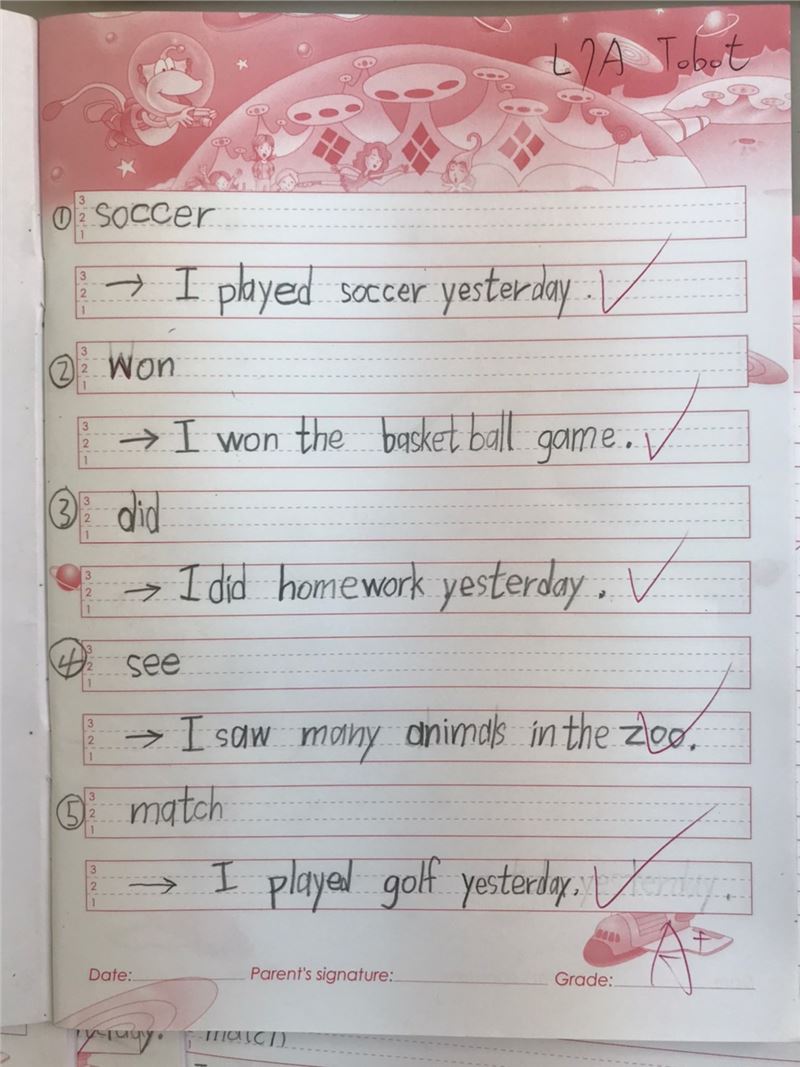 L7A Tobot
① soccer
→ I played soccer yesterday.
② Won
→ I won the basketball game.
③ did
→ I did homework yesterday.
④ see
→ I saw many animals in the zoo.
⑤ match
→ I played golf yesterday.
Date: Parent's signature: Grade: A+
match